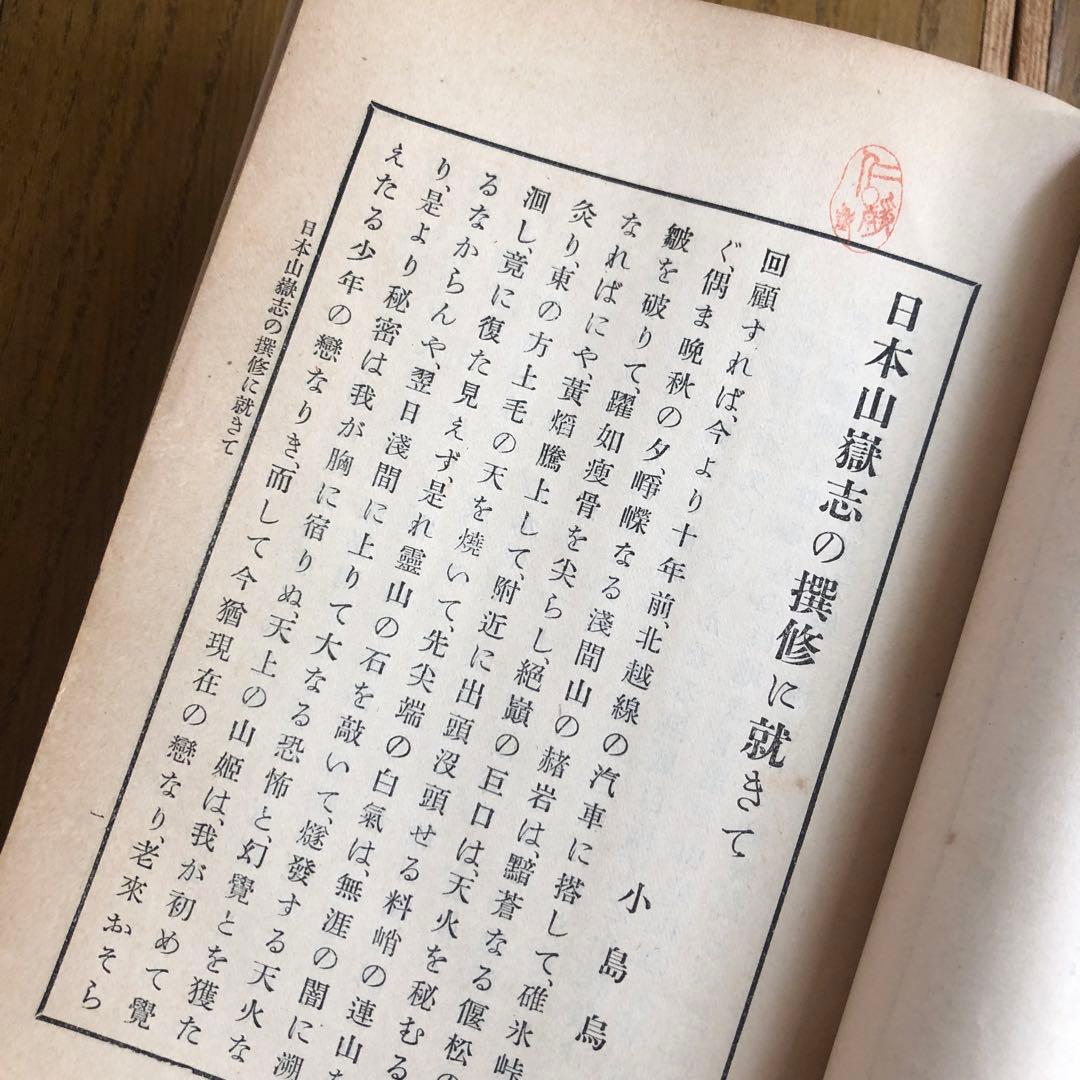 日本山嶽志の撰修に就きて
小島烏
回顧すれば、今より十年前、北越線の汽車に搭して、碓氷峠
ぐ、偶ま晩秋の夕、崢嶸なる淺間山の赭岩は、黯蒼なる偃松の
皺を破りて、躍如瘦骨を尖らし、絕巓の巨口は、天火を秘むる
なればにや、黃焰騰上して、附近に出頭沒頭せる料峭の連山
灸り、東の方上毛の天を燒いて、先尖端の白氣は、無涯の闇に溯
洄し、竟に復た見えず、是れ靈山の石を敲いて、燧發する天火な
るなからんや、翌日淺間に上りて大なる恐怖と、幻覺とを獲た
り、是より秘密は我が胸に宿りぬ、天上の山姬は、我が初めて覺
えたる少年の戀なりき、而して今猶現在の戀なり、老來おそら
日本山嶽志の撰修に就きて
一
仁